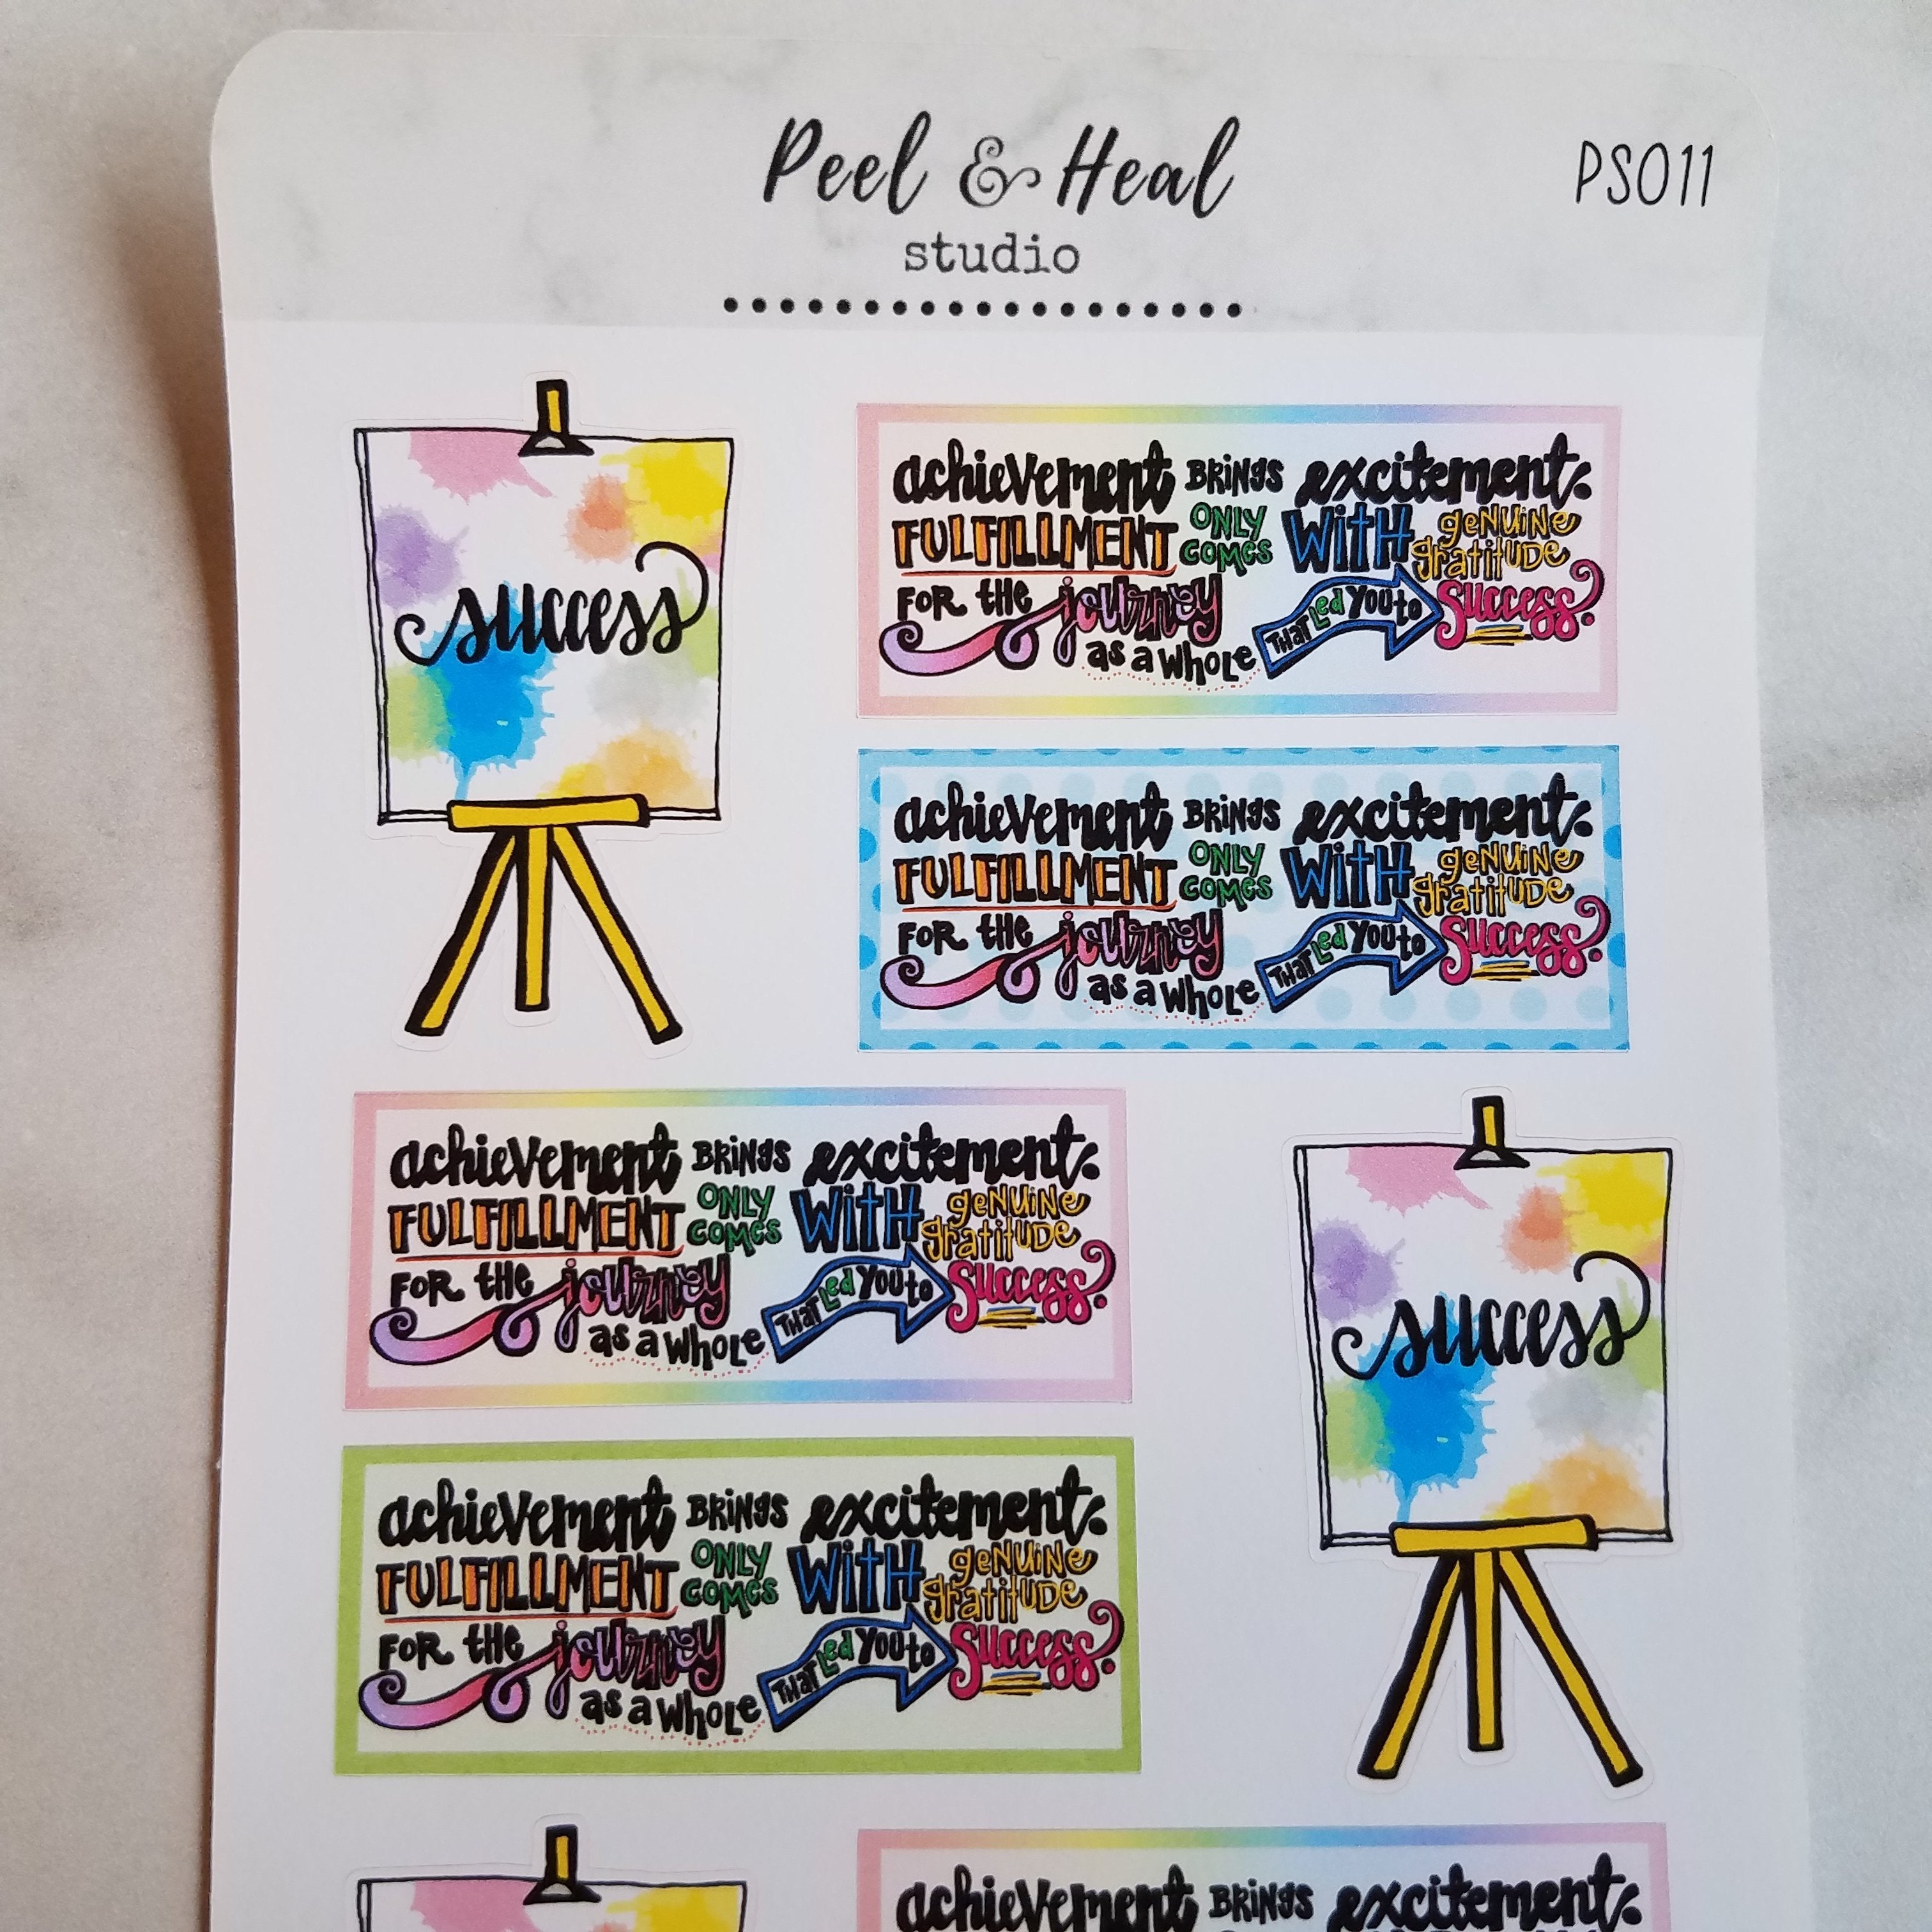 Peel & Heal
studio
PS011
success
achievement BRINGS excitement:
FULFILLMENT ONLY COMES WITH genuine gratitude
FOR the journey
as a whole
THAT Led YOU to Success.
achievement BRINGS excitement:
FULFILLMENT ONLY COMES WITH genuine gratitude
FOR the journey
as a whole
THAT Led YOU to Success.
achievement BRINGS excitement:
FULFILLMENT ONLY COMES WITH genuine gratitude
FOR the journey
as a whole
THAT Led YOU to Success.
success
achievement BRINGS excitement:
FULFILLMENT ONLY COMES WITH genuine gratitude
FOR the journey
as a whole
THAT Led YOU to Success.
achievement BRINGS excitement: